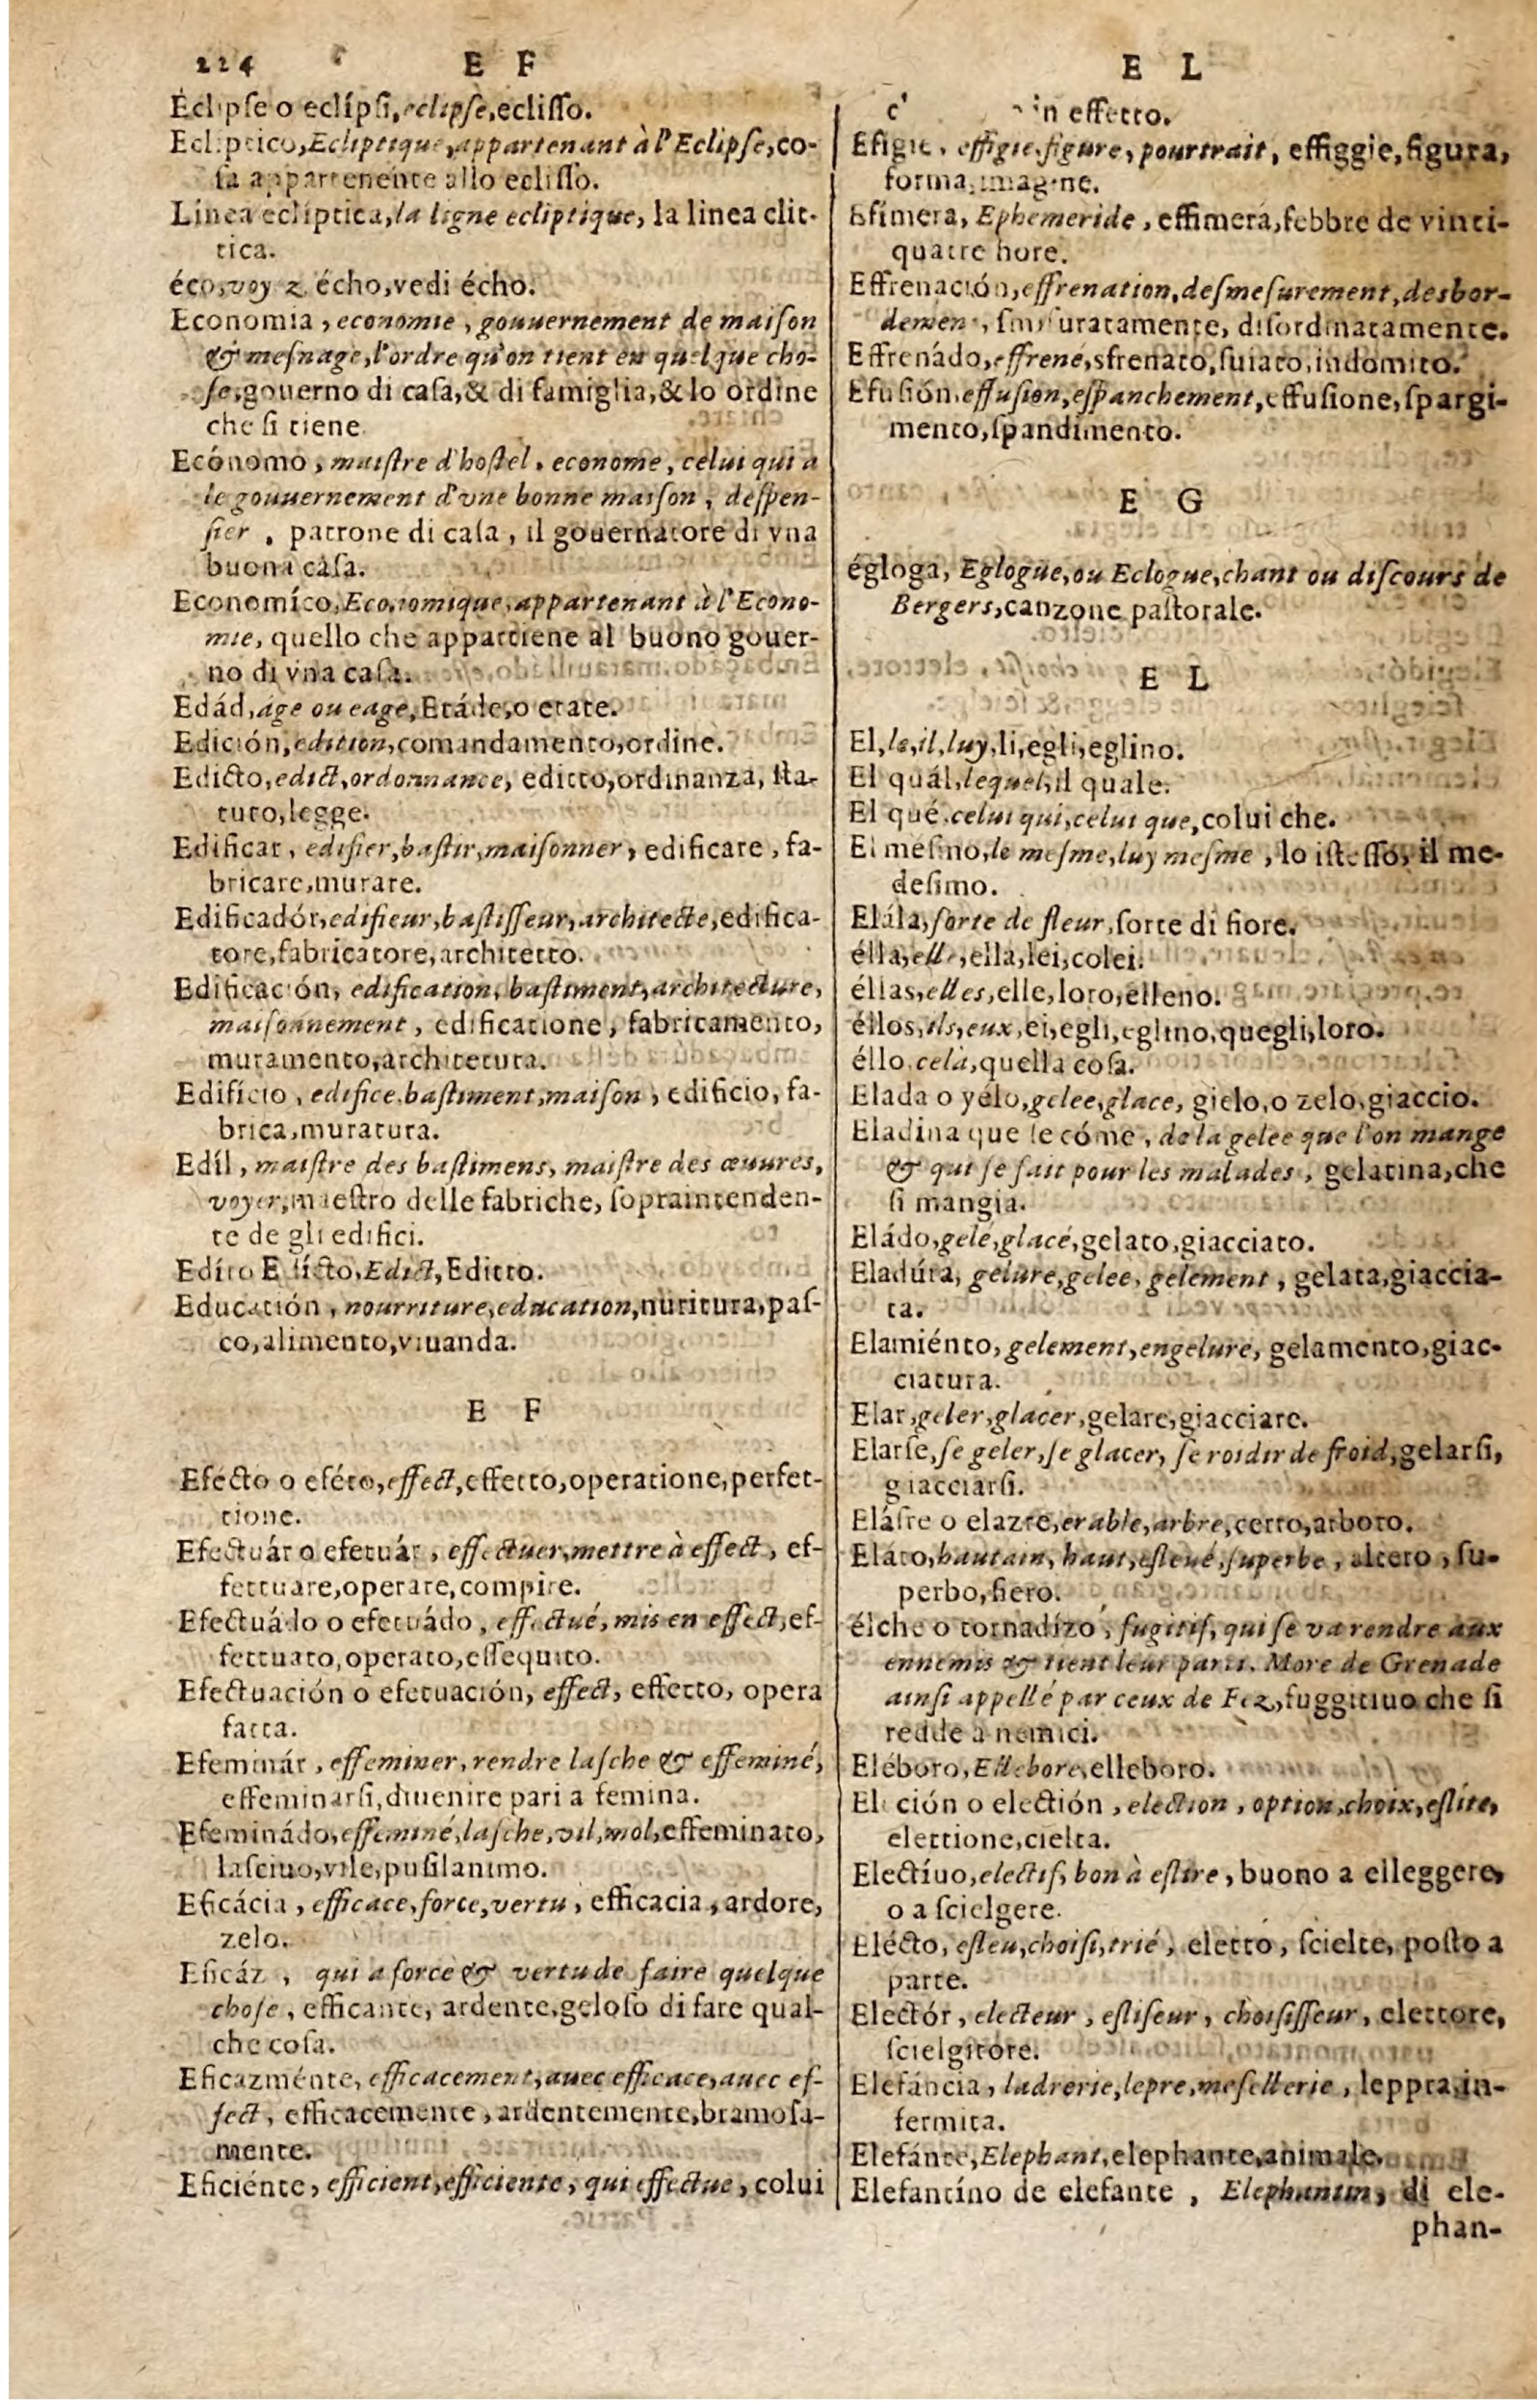 224 E F
Eclipse o eclípsi, eclipse, eclisso.
Ecliptico, Ecliptique, appartenant à l'Eclipse, co-
sa appartenente allo eclisso.
Linea ecliptica, la ligne ecliptique, la linea clit-
tica.
éco, voyez écho, vedi écho.
Economia, economie, gouuernement de maison
& mesnage, l'ordre qu'on tient en quelque cho-
se, gouerno di casa, & di famiglia, & lo ordine
che si tiene
Ecónomo, maistre d'hostel, econome, celui qui a
le gouuernement d'vne bonne maison, despen-
sier, patrone di casa, il gouernatore di vna
buona casa.
Economíco, Economique, appartenant à l'Econo-
mie, quello che appartiene al buono gouer-
no di vna casa.
Edád, áge ou eage, Etáde, o etate.
Edición, edition, comandamento, ordine.
Edicto, edict, ordonnance, editto, ordinanza, sta-
tuto, legge.
Edificar, edifier, bastir, maisonner, edificare, fa-
bricare, murare.
Edificadór, edifieur, bastisseur, architecte, edifica-
tore, fabricatore, architetto.
Edificación, edification, bastiment, architecture,
maisonnement, edificatione, fabricamento,
muramento, architetura.
Edifício, edifice, bastiment, maison, edificio, fa-
brica, muratura.
Edíl, maistre des bastimens, maistre des œuures,
voyer, maestro delle fabriche, sopraintenden-
te de gli edifici.
Edíto Edícto, Edict, Editto.
Educatión, nourriture, education, nuritura, pas-
co, alimento, viuanda.
E F
Efécto o eféto, effect, effetto, operatione, perfet-
tione.
Efectuár o efetuár, effectuer, mettre à effect, ef-
fettuare, operare, compire.
Efectuádo o efetuádo, effectué, mis en effect, ef-
fettuato, operato, essequito.
Efectuación o efetuación, effect, effetto, opera
fatta.
Efeminár, effeminer, rendre lasche & effeminé,
effeminarsi, diuenire pari a femina.
Efeminádo, effeminé, lasche, vil, mol, effeminato,
lasciuo, vile, pusilanimo.
Eficácia, efficace, force, vertu, efficacia, ardore,
zelo.
Eficáz, qui a force & vertu de faire quelque
chose, efficante, ardente, geloso di fare qual-
che cosa.
Eficazménte, efficacement, auec efficace, auec ef-
fect, efficacemente, ardentemente, bramosa-
mente.
Eficiénte, efficient, efficiente, qui effectue, colui
E L
in effetto.
Efigie, effigie, figure, pourtrait, effiggie, figura,
forma, imagine.
Efimera, Ephemeride, effimera, febbre de vinti-
quatre hore.
Effrenación, effrenation, desmesurement, desbor-
demen, smisuratamente, disordinatamente.
Effrenádo, effrené, sfrenato, suiato, indomito.
Efusión, effusion, espanchement, effusione, spargi-
mento, spandimento.
E G
égloga, Eglogue, ou Eclogue, chant ou discours de
Bergers, canzone pastorale.
E L
El, le, il, luy, li, egli, eglino.
El quál, lequel, il quale.
El qué, celui qui, celui que, colui che.
El mesmo, le mesme, luy mesme, lo istesso, il me-
desimo.
Elála, sorte de fleur, sorte di fiore.
élla, elle, ella, lei, colei.
éllas, elles, elle, loro, elleno.
éllos, ils, eux, ei, egli, eglino, quegli, loro.
éllo, celà, quella cosa.
Elada o yélo, gelee, glace, gielo, o zelo, giaccio.
Eladina que se cóme, de la gelee que l'on mange
& qui se fait pour les malades, gelatina, che
si mangia.
Eládo, gelé, glacé, gelato, giacciato.
Eladúra, gelure, gelee, gelement, gelata, giaccia-
ta.
Elamiénto, gelement, engelure, gelamento, giac-
ciatura.
Elar, geler, glacer, gelare, giacciare.
Elarse, se geler, se glacer, se roidir de froid, gelarsi,
giacciarsi.
Elásre o elazre, erable, arbre, cerro, arboro.
Eláto, hautain, haut, esleué, superbe, altero, su-
perbo, fiero.
élche o tornadízo, fugitif, qui se va rendre aux
ennemis & tient leur parti. More de Grenade
ainsi appellé par ceux de Fez, fuggitiuo che si
redde a nemici.
Eléboro, Ellebore, elleboro.
Eleción o electión, election, option, choix, eslite,
elettione, cielta.
Electíuo, electif, bon à eslire, buono a elleggere,
o a scielgere.
Elécto, esleu, choisi, trié, eletto, scielte, posto a
parte.
Electór, electeur, esliseur, choisisseur, elettore,
scielgitore.
Elefáncia, ladrerie, lepre, mesellerie, leppra, in-
fermita.
Elefánte, Elephant, elephante, animale.
Elefantíno de elefante, Elephantin, di ele-
phan-